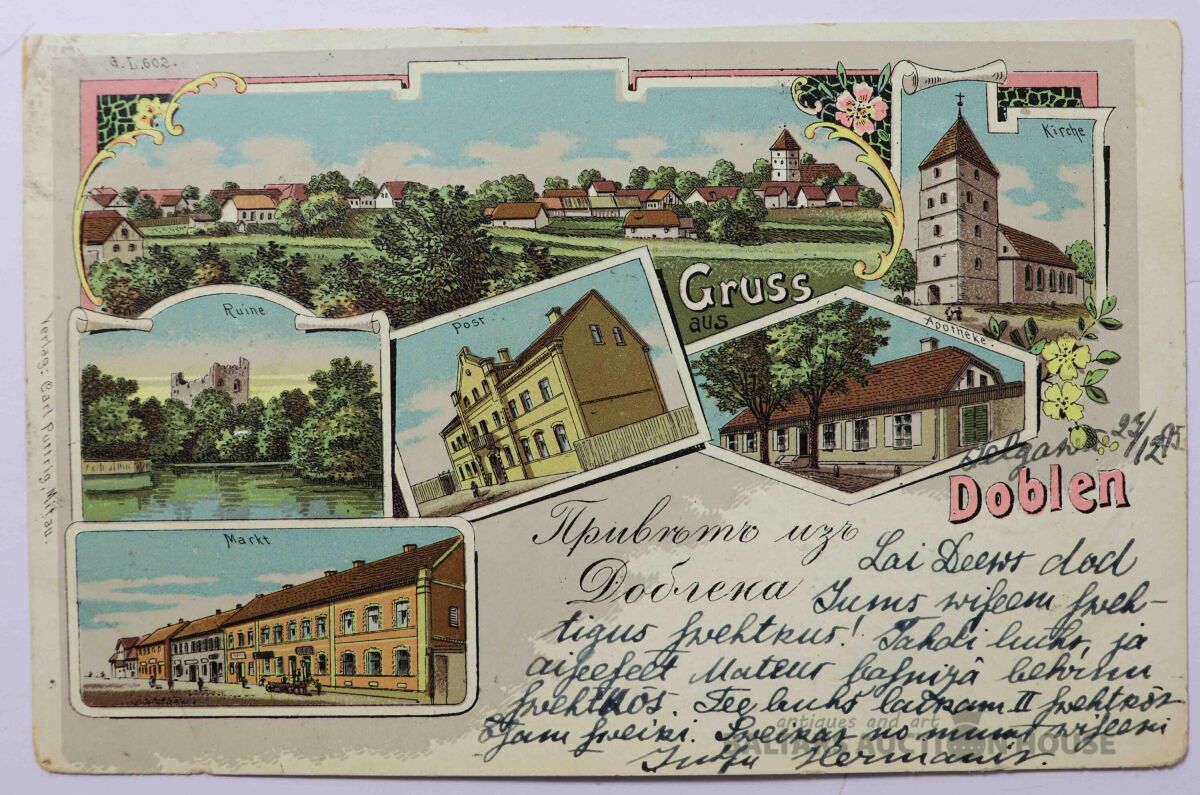 G. L. 602.
Kirche
Gruss
aus
Ruine
Post
Apotheke.
Verlag: Carl Puttrig, Mitau.
Markt
Jelgawa 23/12
Doblen
Привѣтъ изъ
Доблена
Lai Deews dod
Jums wiseem sweh-
tigus swehtkus! Tahdi buhs, ja
aiseeset Mateus basnizā behrnu
swehtkōs. Teg buhs laikam II swehtkōs
Esam sweiki. Sweikas no mums wiseem
Juhsu Hermanis.
antiques and art
BALTARS AUCTION HOUSE